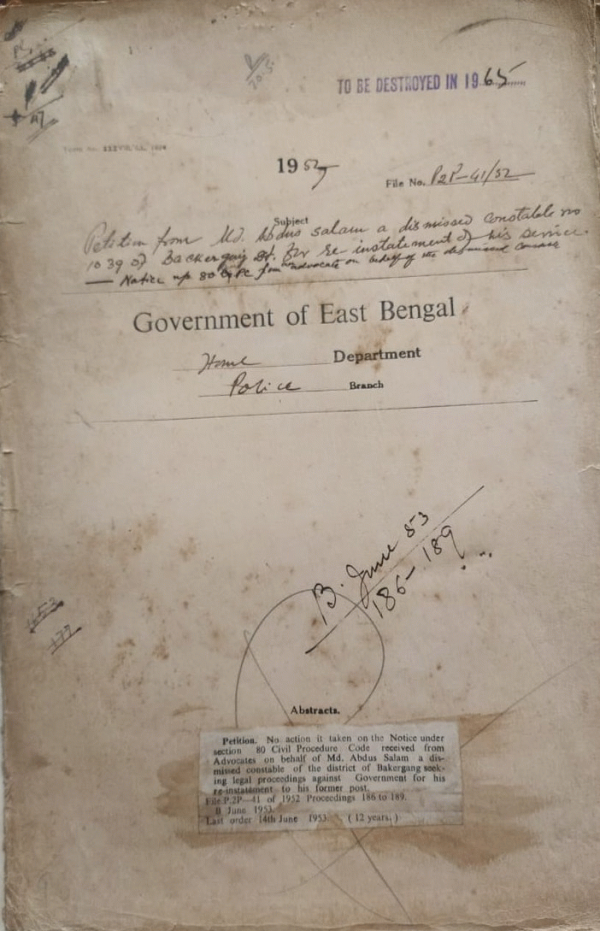 TO BE DESTROYED IN 1965
1952
File No. P2P-41/52
Subject
Petition from Md. Abdus Salam a dismissed constable no
1039 of Backergunj Dt. for re instatement of his service.
— Notice u/s 80 C.P.C from advocate on behalf of the dismissed
Government of East Bengal
Home Department
Police Branch
B. June 53
186-189
Abstracts.
Petition. No action it taken on the Notice under
section 80 Civil Procedure Code received from
Advocates on behalf of Md. Abdus Salam a dis-
missed constable of the district of Bakergang seek-
ing legal proceedings against Government for his
re-instatement to his former post.
File P.2P—41 of 1952 Proceedings 186 to 189.
B June 1953.
Last order 14th June 1953. (12 years.)